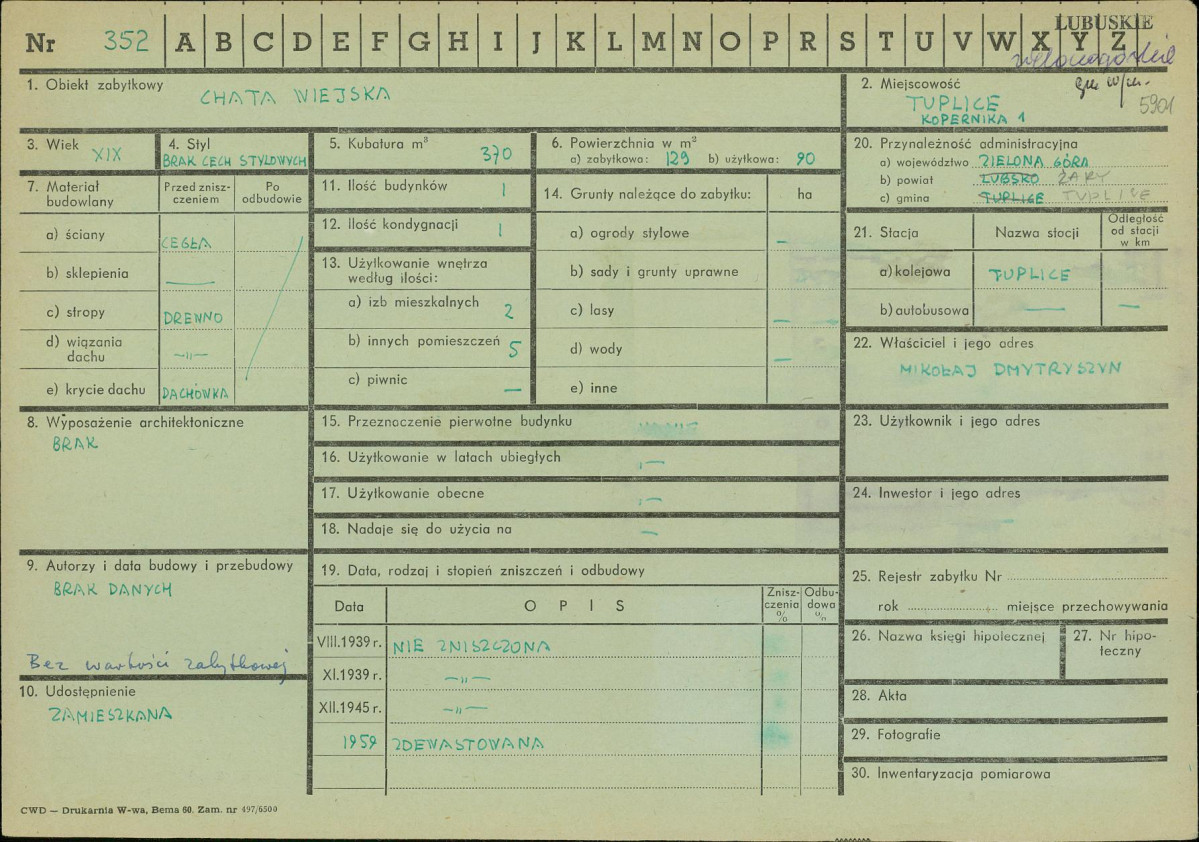 LUBUSKIE
Nr 352 A B C D E F G H I J K L M N O P R S T U V W X Y Z
zielonogórskie
1. Obiekt zabytkowy
CHATA WIEJSKA
2. Miejscowość
TUPLICE
KOPERNIKA 1
5901
3. Wiek XIX
4. Styl
BRAK CECH STYLOWYCH
5. Kubatura m³ 370
6. Powierzchnia w m²
a) zabytkowa: 129 b) użytkowa: 90
20. Przynależność administracyjna
a) województwo ZIELONA GÓRA
b) powiat LUBSKO ŻARY
c) gmina TUPLICE TUPLICE
7. Materiał budowlany
Przed zniszczeniem
Po odbudowie
a) ściany CEGŁA
b) sklepienia —
c) stropy DREWNO
d) wiązania dachu —„—
e) krycie dachu DACHÓWKA
11. Ilość budynków 1
12. Ilość kondygnacji 1
13. Użytkowanie wnętrza
według ilości:
a) izb mieszkalnych 2
b) innych pomieszczeń 5
c) piwnic —
14. Grunty należące do zabytku: ha
a) ogrody stylowe —
b) sady i grunty uprawne
c) lasy — —
d) wody —
e) inne
21. Stacja Nazwa stacji Odległość od stacji w km
a) kolejowa TUPLICE
b) autobusowa — —
22. Właściciel i jego adres
MIKOŁAJ DMYTRYSZYN
8. Wyposażenie architektoniczne
BRAK
15. Przeznaczenie pierwotne budynku
16. Użytkowanie w latach ubiegłych —
17. Użytkowanie obecne —
18. Nadaje się do użycia na —
23. Użytkownik i jego adres
24. Inwestor i jego adres
9. Autorzy i data budowy i przebudowy
BRAK DANYCH
Bez wartości zabytkowej
10. Udostępnienie
ZAMIESZKANA
19. Data, rodzaj i stopień zniszczeń i odbudowy
Data OPIS Zniszczenia % Odbudowa %
VIII.1939 r. NIE ZNISZCZONA
XI.1939 r. —„—
XII.1945 r. —„—
1959 ZDEWASTOWANA
25. Rejestr zabytku Nr
rok miejsce przechowywania
26. Nazwa księgi hipotecznej
27. Nr hipoteczny
28. Akta
29. Fotografie
30. Inwentaryzacja pomiarowa
CWD — Drukarnia W-wa, Bema 60. Zam. nr 497/6500